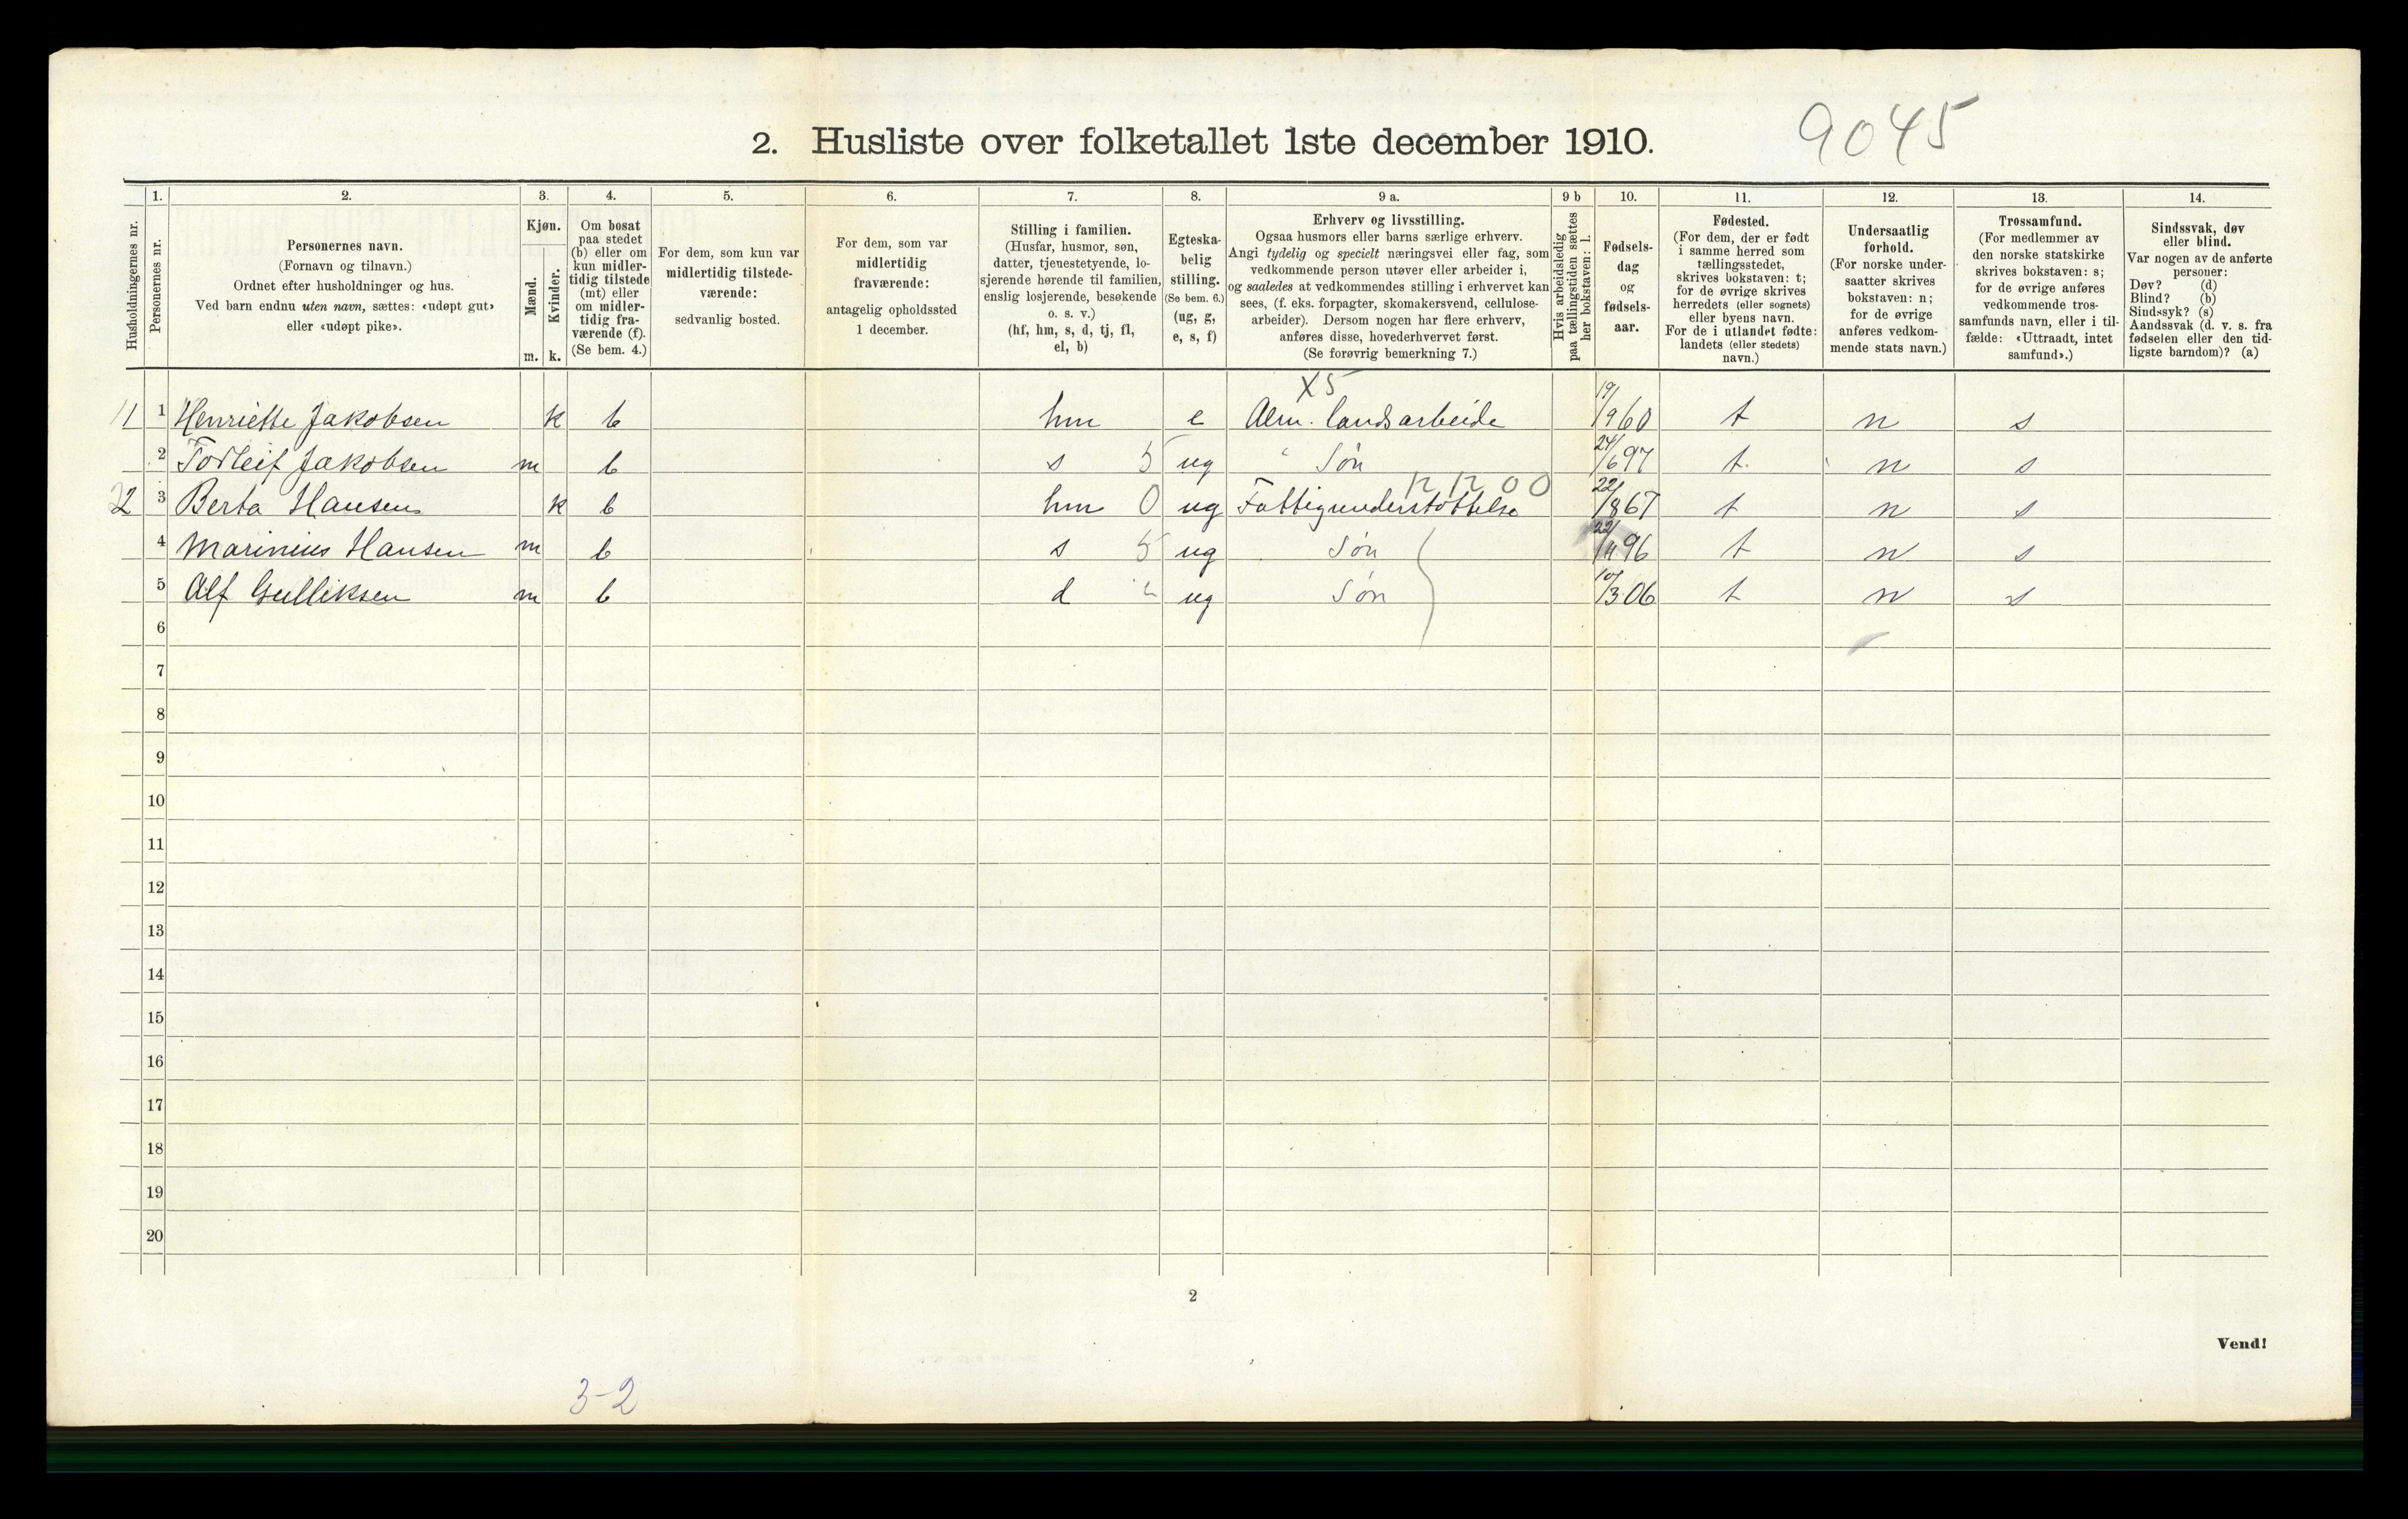 9045
2. Husliste over folketallet 1ste december 1910.
Husholdningernes nr.
1. Personernes nr.
2. Personernes navn.
(Fornavn og tilnavn.)
Ordnet efter husholdninger og hus.
Ved barn endnu uten navn, sættes: «udøpt gut»
eller «udøpt pike».
3. Kjøn.
Mænd. m.
Kvinder. k.
4. Om bosat
paa stedet
(b) eller om
kun midler-
tidig tilstede
(mt) eller
om midler-
tidig fra-
værende (f).
(Se bem. 4.)
5. For dem, som kun var
midlertidig tilstede-
værende:
sedvanlig bosted.
6. For dem, som var
midlertidig
fraværende:
antagelig opholdssted
1 december.
7. Stilling i familien.
(Husfar, husmor, søn,
datter, tjenestetyende, lo-
sjerende hørende til familien,
enslig losjerende, besøkende
o. s. v.)
(hf, hm, s, d, tj, fl,
el, b)
8. Egteska-
belig
stilling.
(Se bem. 6.)
(ug, g,
e, s, f)
9 a. Erhverv og livsstilling.
Ogsaa husmors eller barns særlige erhverv.
Angi tydelig og specielt næringsvei eller fag, som
vedkommende person utøver eller arbeider i,
og saaledes at vedkommendes stilling i erhvervet kan
sees, (f. eks. forpagter, skomakersvend, cellulose-
arbeider). Dersom nogen har flere erhverv,
anføres disse, hovederhvervet først.
(Se forøvrig bemerkning 7.)
9 b Hvis arbeidsledig
paa tællingstiden sættes
her bokstaven: l.
10. Fødsels-
dag
og
fødsels-
aar.
11. Fødested.
(For dem, der er født
i samme herred som
tællingsstedet,
skrives bokstaven: t;
for de øvrige skrives
herredets (eller sognets)
eller byens navn.
For de i utlandet fødte:
landets (eller stedets)
navn.)
12. Undersaatlig
forhold.
(For norske under-
saatter skrives
bokstaven: n;
for de øvrige
anføres vedkom-
mende stats navn.)
13. Trossamfund.
(For medlemmer av
den norske statskirke
skrives bokstaven: s;
for de øvrige anføres
vedkommende tros-
samfunds navn, eller i til-
fælde: «Uttraadt, intet
samfund».)
14. Sindssvak, døv
eller blind.
Var nogen av de anførte
personer:
Døv? (d)
Blind? (b)
Sindssyk? (s)
Aandssvak (d. v. s. fra
fødselen eller den tid-
ligste barndom)? (a)
X5
1 1 Henriette Jakobsen k b hm e Alm. landsarbeide 19/9 60 t n s
2 Torleif Jakobsen m b s 5 ug " Søn 24/6 97 t. n s
2 3 Berta Hansen k b hm 0 ug Fattigunderstøttelse 22/8 67 t n s
4 Marinius Hansen m b s 5 ug Søn 22/11 96 t n s
5 Alf Gulliksen m b d ug Søn 10/3 06 t n s
6
7
8
9
10
11
12
13
14
15
16
17
18
19
20
2
Vend!
3-2